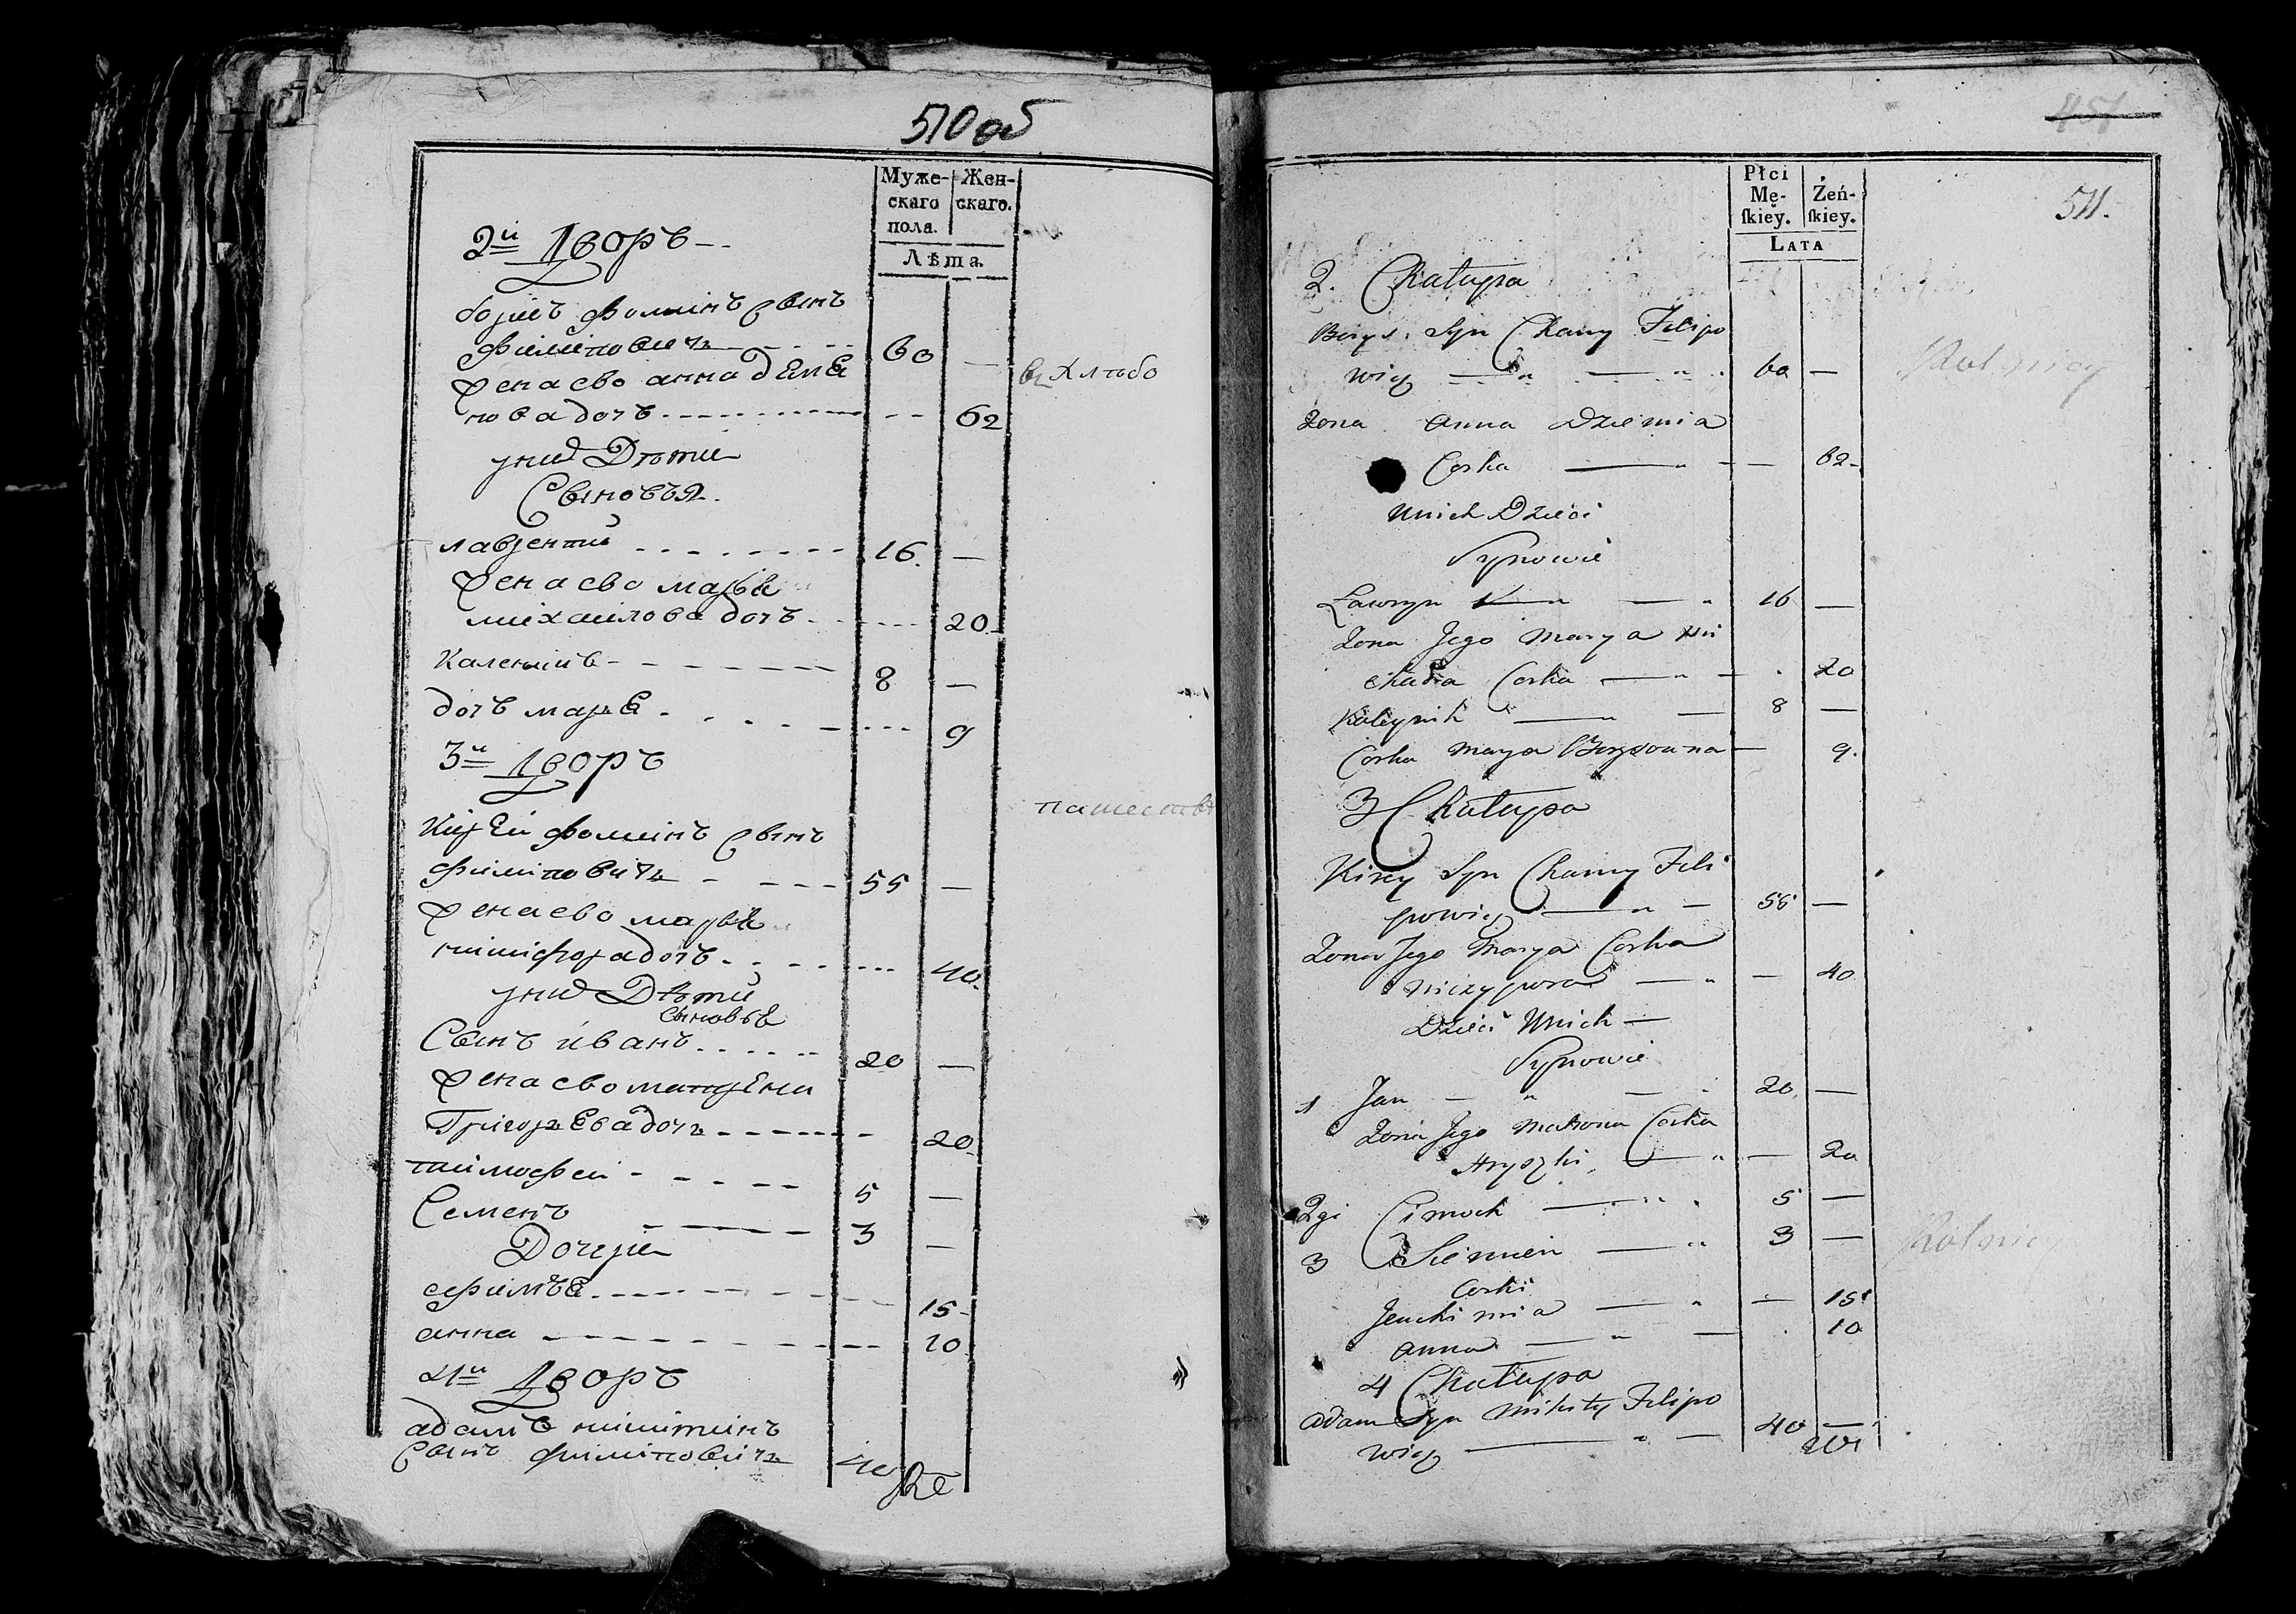 510 об
Муже- Жен-
скаго скаго.
пола.
Лѣта.
2й Дворъ
борисъ фоминъ сынъ
филиповичъ 60 —
жена ево анна дємє
нова дочъ 62
у них Дѣти
Сыновья
лаврентий 16 —
жена ево марья
михаилова дочъ 20
Каленикъ 8 —
дочъ марья 9
3й Дворъ
Кирєй фоминъ сынъ
филиповичъ 55 —
жена ево марья
никифора дочъ 40
у них Дѣти
сыновья
Сынъ иванъ 20 —
жена ево матрєна
Григорьєва дочъ 20
тимофеи 5 —
Семенъ 3 —
Дочери
ефимья 15
анна 10
4й Дворъ
адамъ никитинъ
сынъ филиповичъ 40
451
511.
Płci
Mę- Żeń-
skiey. skiey.
LATA
2. Chałupa
Borys Syn Chamy Filipo
wicz 60 —
Rolnicy
Zona Anna Dziemia
Corka — 62
U nich Dzieci
Synowie
Lawryn 16 —
Zona Jego Marya Mi
chała Corka 20
Kaleynik 8 —
Corka Marya Borysowna — 9.
3 Chałupa
Kirey Syn Chamy Fili
powicz 55 —
Zona Jego Marya Corka
Niczypora — 40
Dzieci U nich
Synowie
1 Jan 20 —
Zona Jego Matrona Corka
Hryszki — 20
2gi Cimoch 5 —
3 Siemien 3 —
Rolnicy
Corki
Jeuchimia — 15
Anna 10
4 Chałupa
Adam Syn Mikity Filipo
wicz 40 —